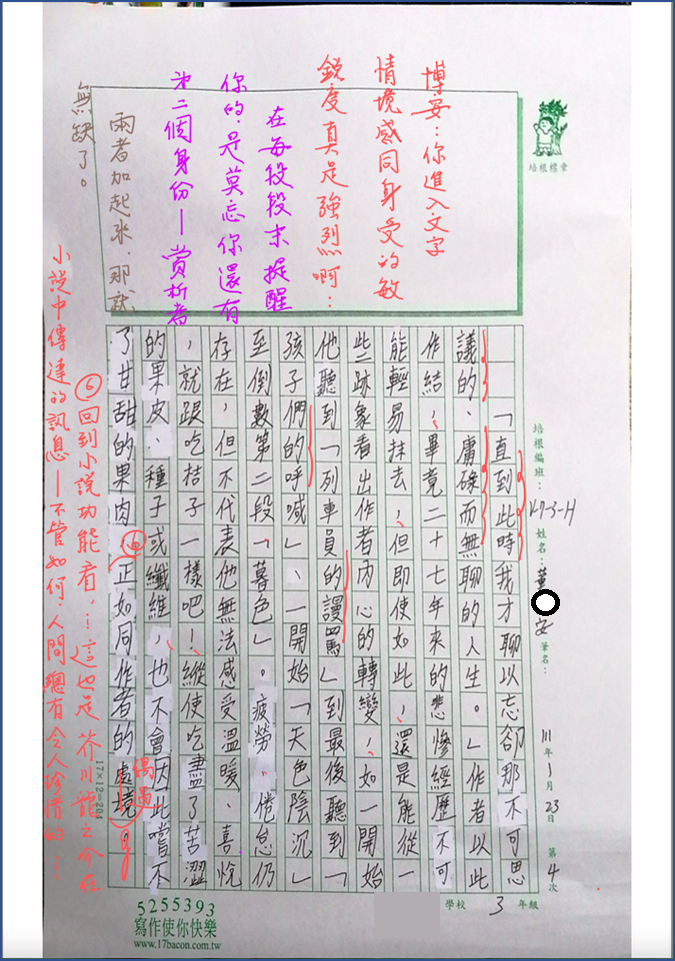 博安：你進入文字
情境感同身受的敏
銳度真是強烈啊：
在每段段末提醒
你的，是莫忘你還有
第二個身份—賞析者
兩者加起來，那就
無缺了。
培根標章
培根編班：K7-3-H 姓名：董 安 筆名：
111年1月23日 第4次
學校 3 年級
「直到此時我才聊以忘卻那不可思
議的、庸碌而無聊的人生。」作者以此
作結，畢竟二十七年來的悲慘經歷不可
能輕易抹去，但即使如此，還是能從一
些跡象看出作者內心的轉變，如一開始
他聽到「列車員的謾罵」到最後聽到「
孩子們的呼喊」、一開始「天色陰沉」
至倒數第二段「暮色」。疲勞、倦怠仍
存在，但不代表他無法感受溫暖、喜悅
，就跟吃桔子一樣吧！縱使吃盡了苦澀
的果皮、種子或纖維，也不會因此嚐不
了甘甜的果肉，正如同作者的處境
偶遇
⑥回到小說功能看，：這也是芥川龍之介在
小說中傳達的訊息—不管如何，人間總有令人珍惜的…
17×12=204
5255393
寫作使你快樂
www.17bacon.com.tw